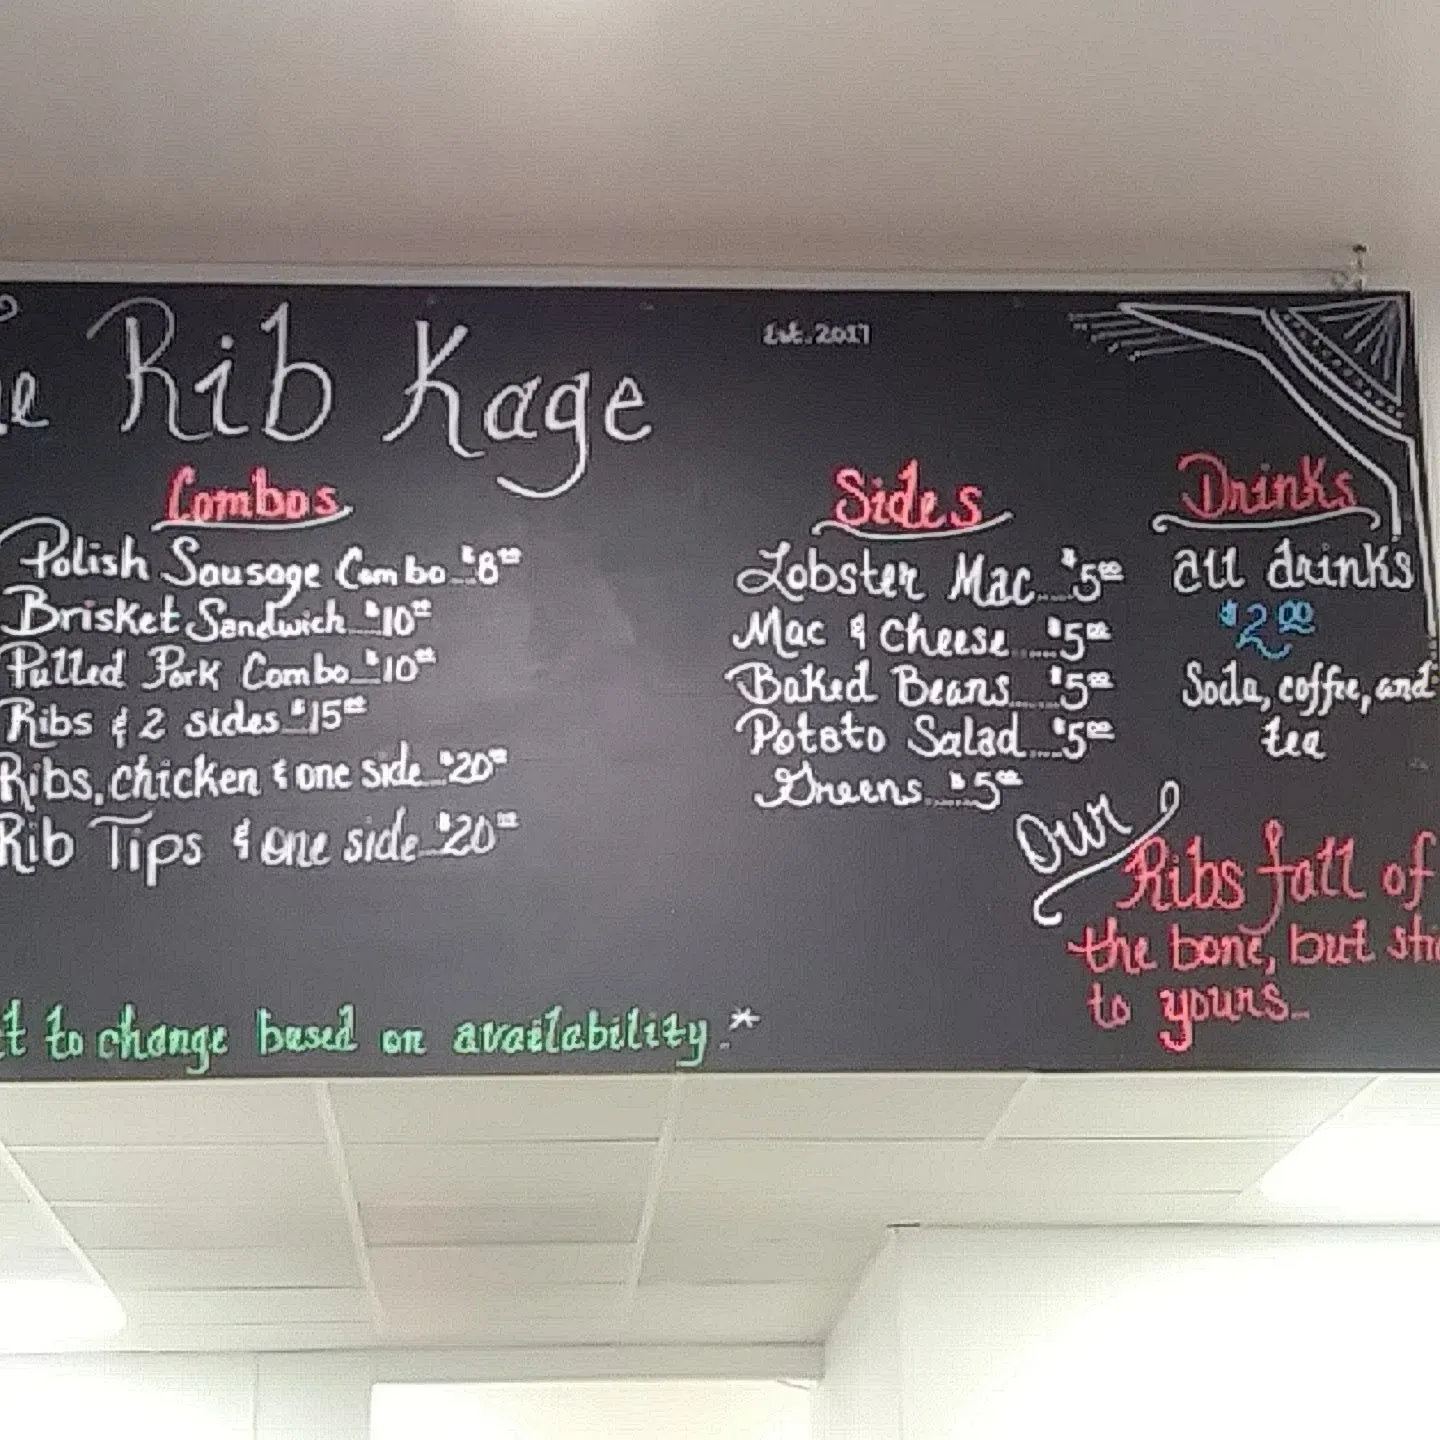 Rib Kage
Est. 2017
Combos
Polish Sausage Combo...$8.00
Brisket Sandwich...$10.00
Pulled Pork Combo...$10.00
Ribs & 2 sides...$15.00
Ribs, chicken & one side...$20.00
Rib Tips & one side...$20.00
Sides
Lobster Mac....$5.00
Mac & Cheese.....$5.00
Baked Beans.....$5.00
Potato Salad....$5.00
Greens.....$5.00
Drinks
all drinks
$2.00
Soda, coffee, and
tea
Our
Ribs fall of
the bone, but sti
to yours...
t to change based on availability.*